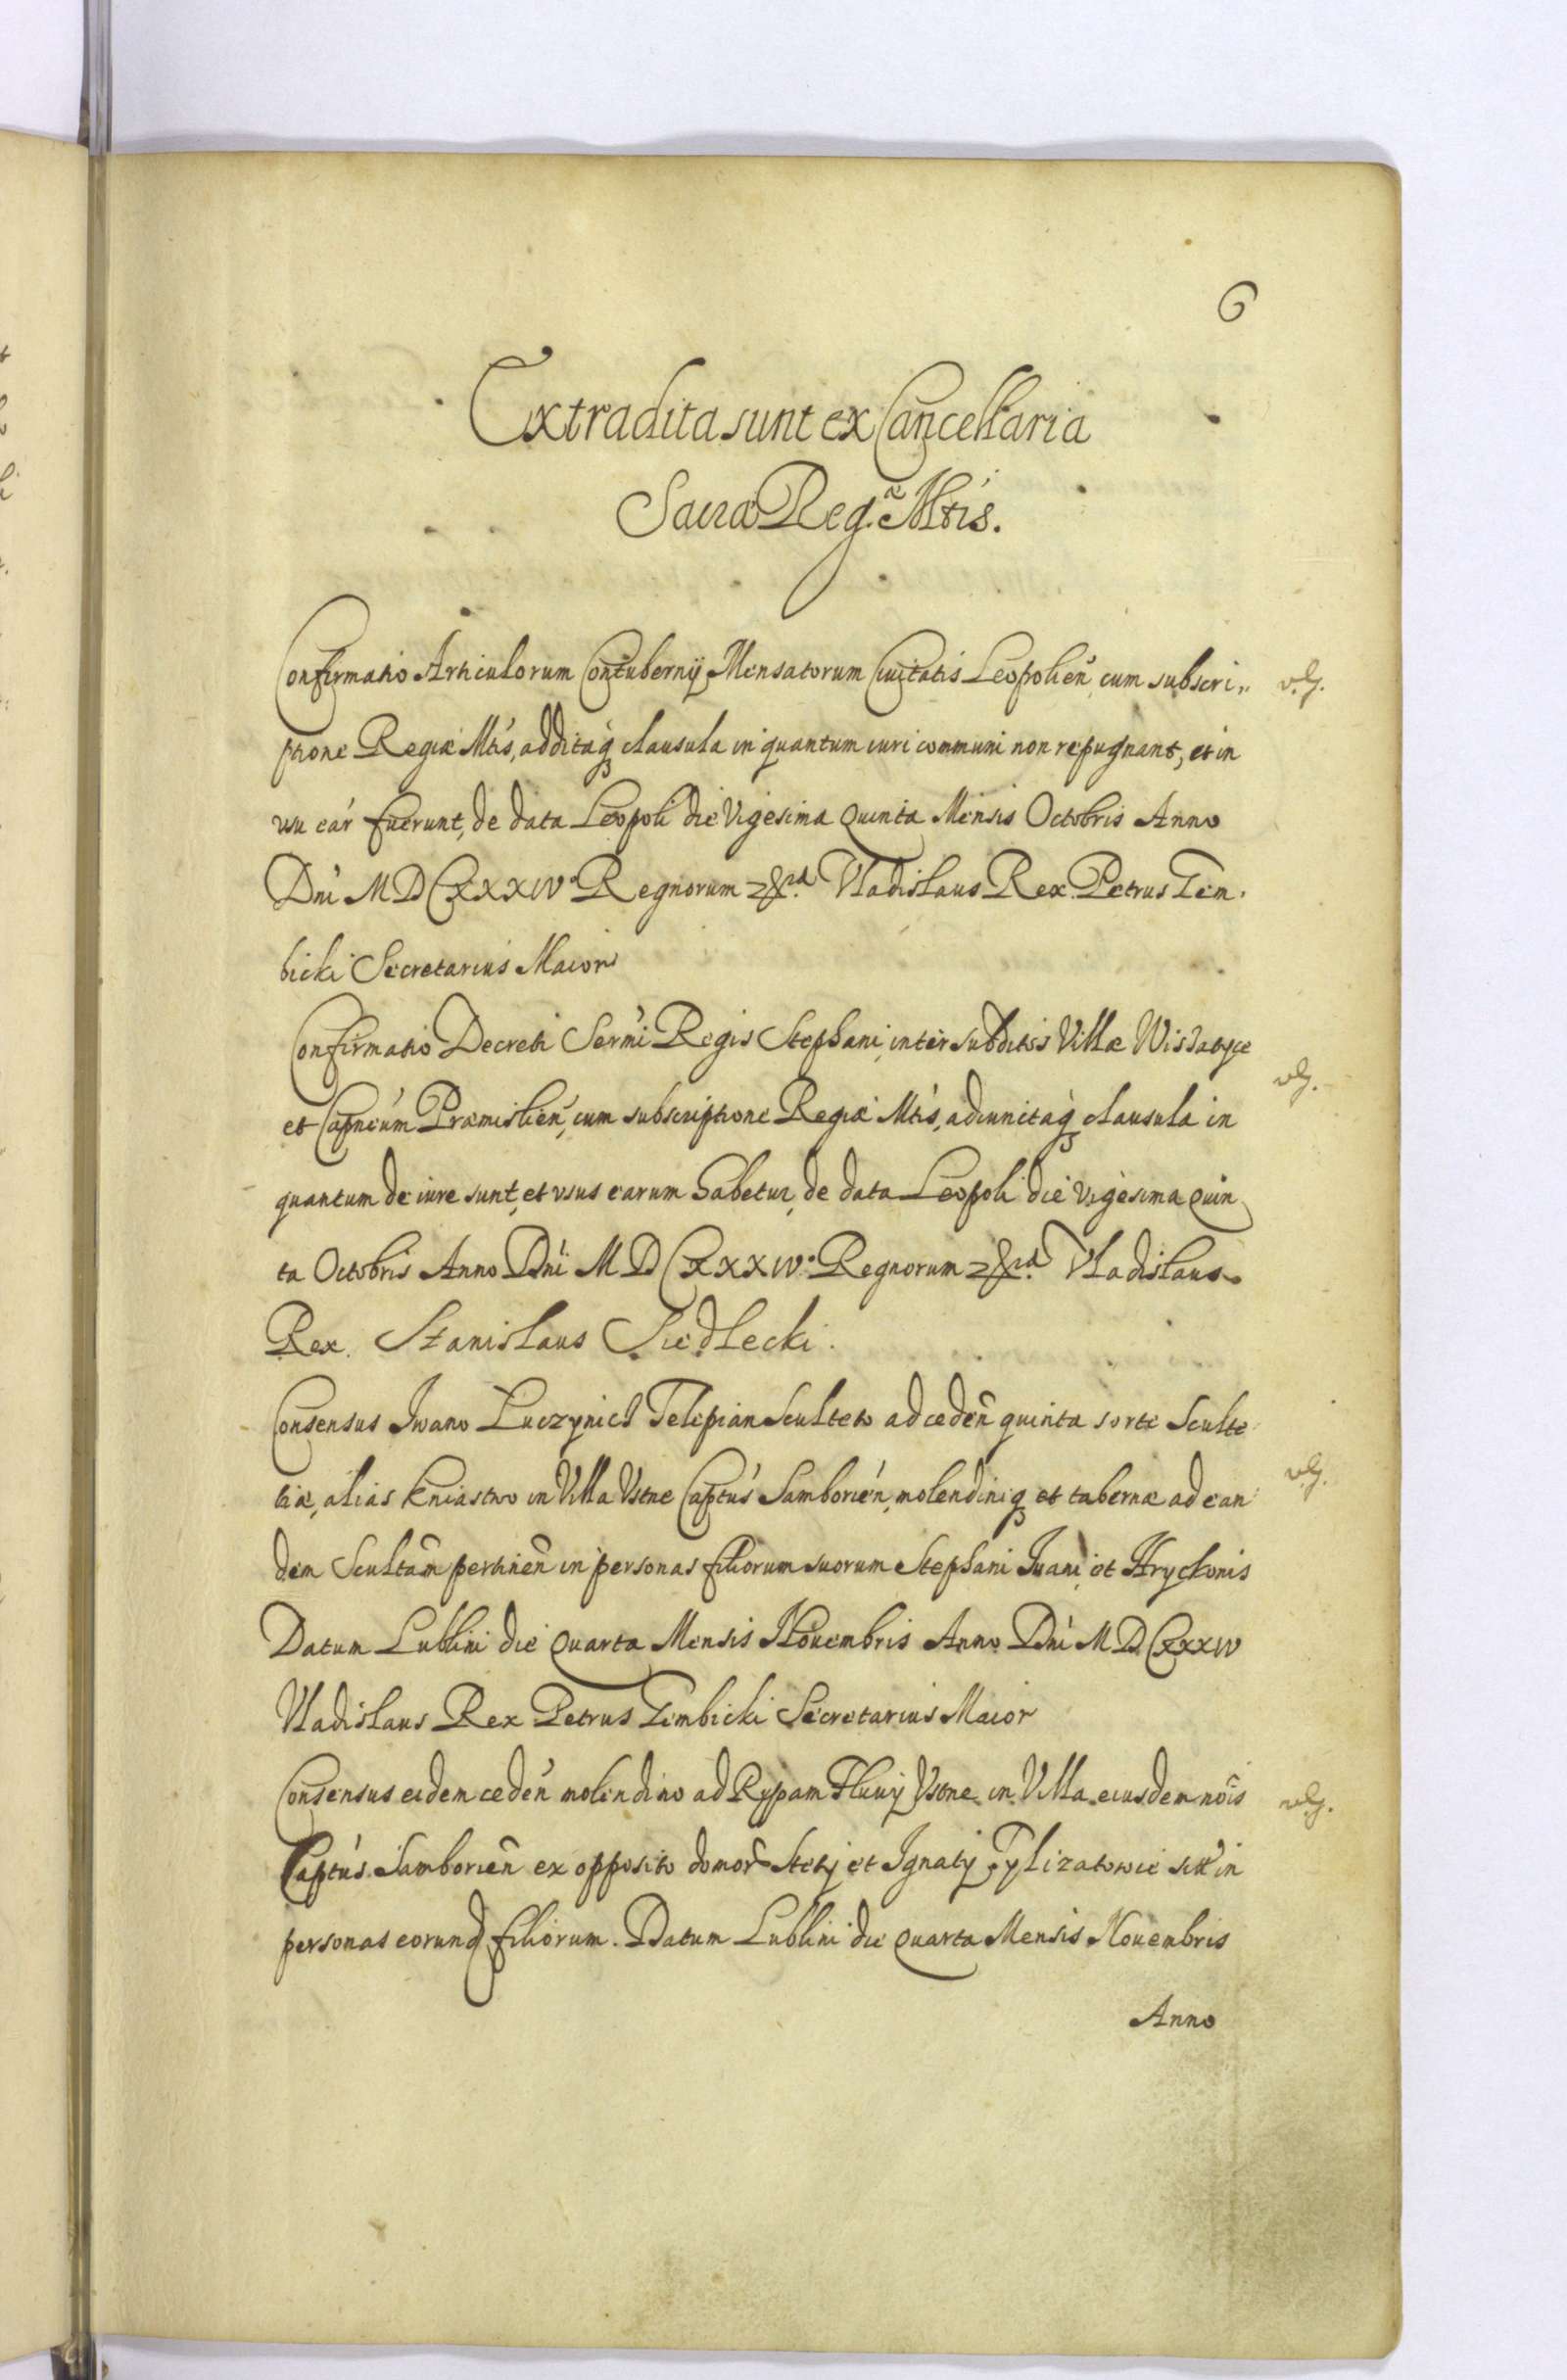 6
Extradita sunt ex Cancellaria
Sacræ Reg.æ Mtis.
Confirmatio Articulorum Contubernij Mensatorum Civitatis Leopolien̄ cum subscri„
ptione Regiæ Mtis, additaq̨ clausula in quantum iuri communi non repugnant, et in
usu ear̄ fuerunt, de data Leopoli die Vigesima Quinta Mensis Octobris Anno
Dni MDCXXXIV° Regnorum Vladislaus Rex. Petrus Gem.
bicki Secretarius Maior
Confirmatio Decreti Serm̄i Regis Stephani, inter subditos Villæ Wissatyce
et Capneum Præmislien̄, cum subscriptione Regiæ Mtis, adiunctaq̨ clausula in
quantum de iure sunt, et vsus earum habetur, de data Leopoli die Vigesima Quin
ta Octobris Anno Dni MDCXXXIV° Regnorum Vladislaus
Rex. Stanislaus Siedlecki.
Consensus Iwano Luczynich Telepian Sculteto ad ceden̄ quinta sorte Sculte
tiæ, alias kniastwo in Villa Ustne Captus Samborien̄, molendiniq̨ et tabernæ ad ean
dem Scultam̄ pertinen̄ in personas filiorum suorum Stephani Iwani, et Hryckonis
Datum Lublini die Quarta Mensis Nouembris Anno Dni MDCXXXIV
Vladislaus Rex Petrus Gembicki Secretarius Maior
Consensus eidem ceden̄ molendino ad Rypam Fluvij Vstne in Villa eiusdem nōis
Captus Samborien̄ ex opposito domor̄ Stetj et Ignatij Tylizatowie sitt̄ in
personas eorund̄ filiorum. Datum Lublini die Quarta Mensis Nouembris
Anno